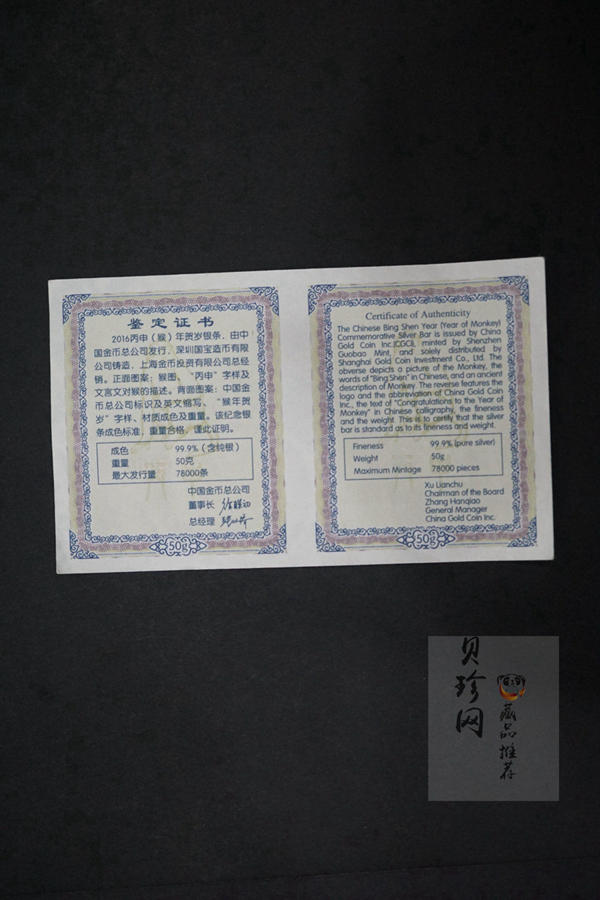 鉴定证书
2016丙申（猴）年贺岁银条，由中
国金币总公司发行，深圳国宝造币有限
公司铸造，上海金币投资有限公司总经
销。正面图案：猴图、“丙申”字样及
文言文对猴的描述。背面图案：中国金
币总公司标识及英文缩写、“猴年贺
岁”字样、材质成色及重量。该纪念银
条成色标准，重量合格，谨此证明。
成色 99.9%（含纯银）
重量 50克
最大发行量 78000条
中国金币总公司
董事长
总经理
50g
Certificate of Authenticity
The Chinese Bing Shen Year (Year of Monkey)
Commemorative Silver Bar is issued by China
Gold Coin Inc.(CGCI), minted by Shenzhen
Guobao Mint, and solely distributed by
Shanghai Gold Coin Investment Co., Ltd. The
obverse depicts a picture of the Monkey, the
words of "Bing Shen" in Chinese, and an ancient
description of Monkey. The reverse features the
logo and the abbreviation of China Gold Coin
Inc., the text of "Congratulations to the Year of
Monkey" in Chinese calligraphy, the fineness
and the weight. This is to certify that the silver
bar is standard as to its fineness and weight.
Fineness 99.9% (pure silver)
Weight 50g
Maximum Mintage 78000 pieces
Xu Lianchu
Chairman of the Board
Zhang Hanqiao
General Manager
China Gold Coin Inc.
50g
贝珍网
藏品推荐